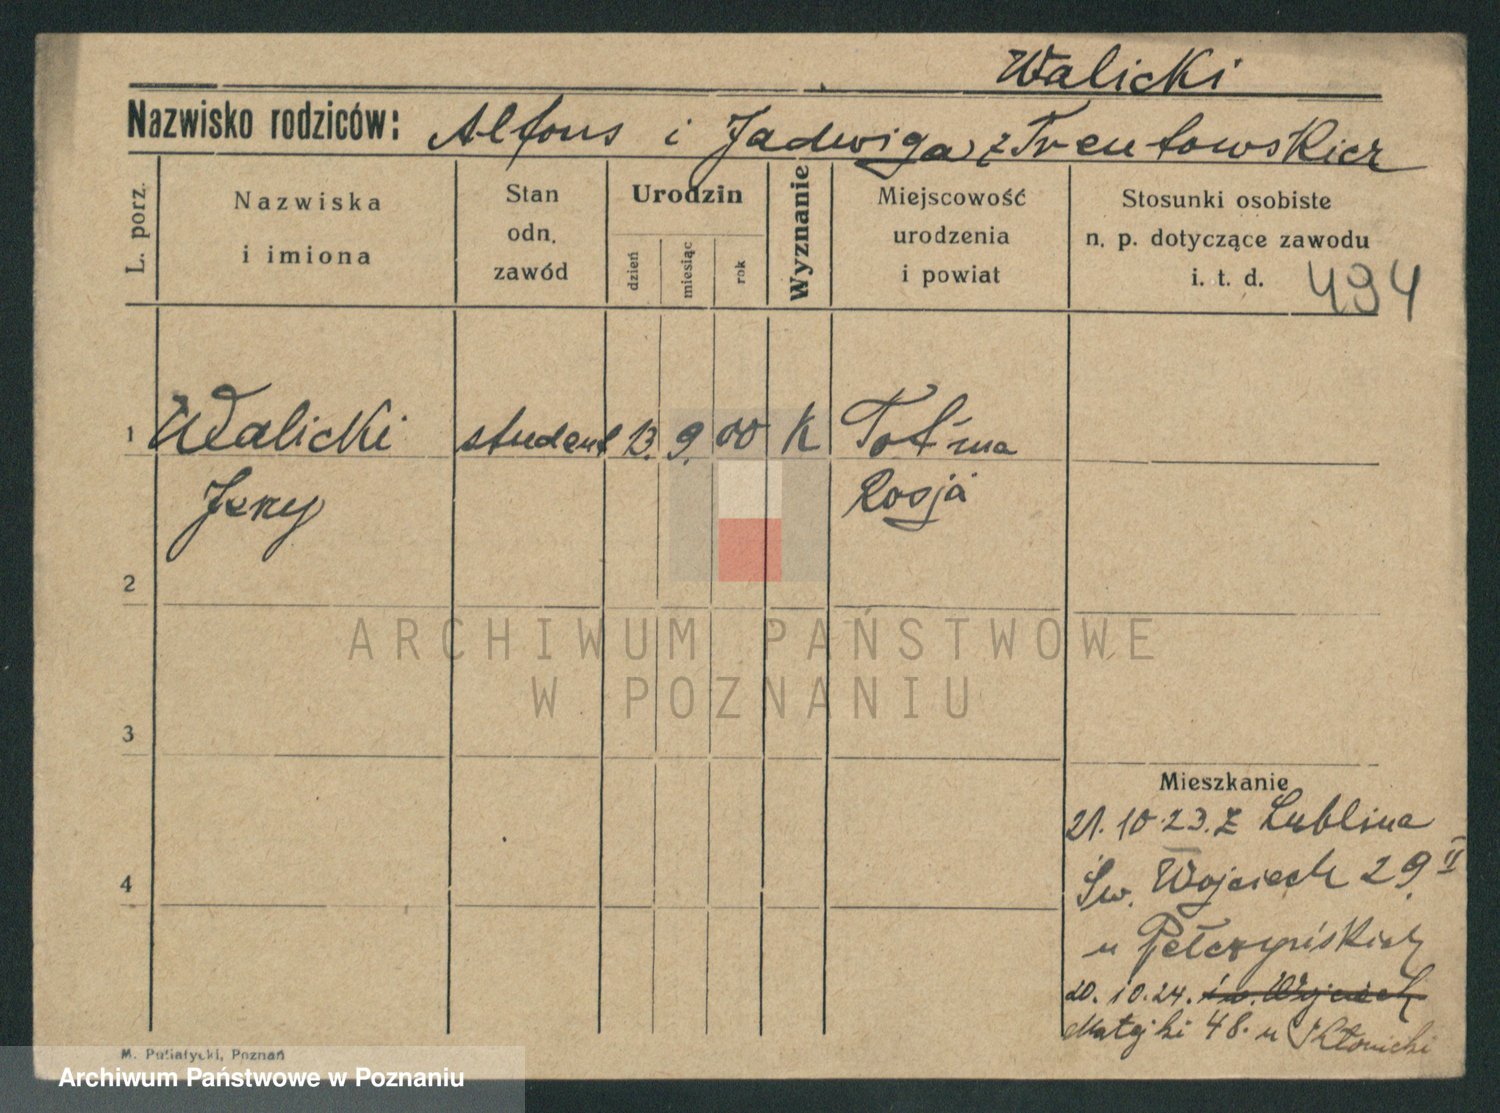 Walicki
Nazwisko rodziców: Alfons i Jadwiga z Trentowskich
L. porz.
Nazwiska
i imiona
Stan
odn.
zawód
Urodzin
dzień
miesiąc
rok
Wyznanie
Miejscowość
urodzenia
i powiat
Stosunki osobiste
n. p. dotyczące zawodu
i. t. d. 494
1 Walicki student 13. 9. 00 K Tot'ma
Jerzy Rosja
2
ARCHIWUM PAŃSTWOWE
W POZNANIU
3
Mieszkanie
21.10.23. z Lublina
4
Św. Wojciech 29 II
u Pełczyńskich
20.10.24. św. Wojciech
Matejki 48. u
M. Putiatycki, Poznań
Archiwum Państwowe w Poznaniu